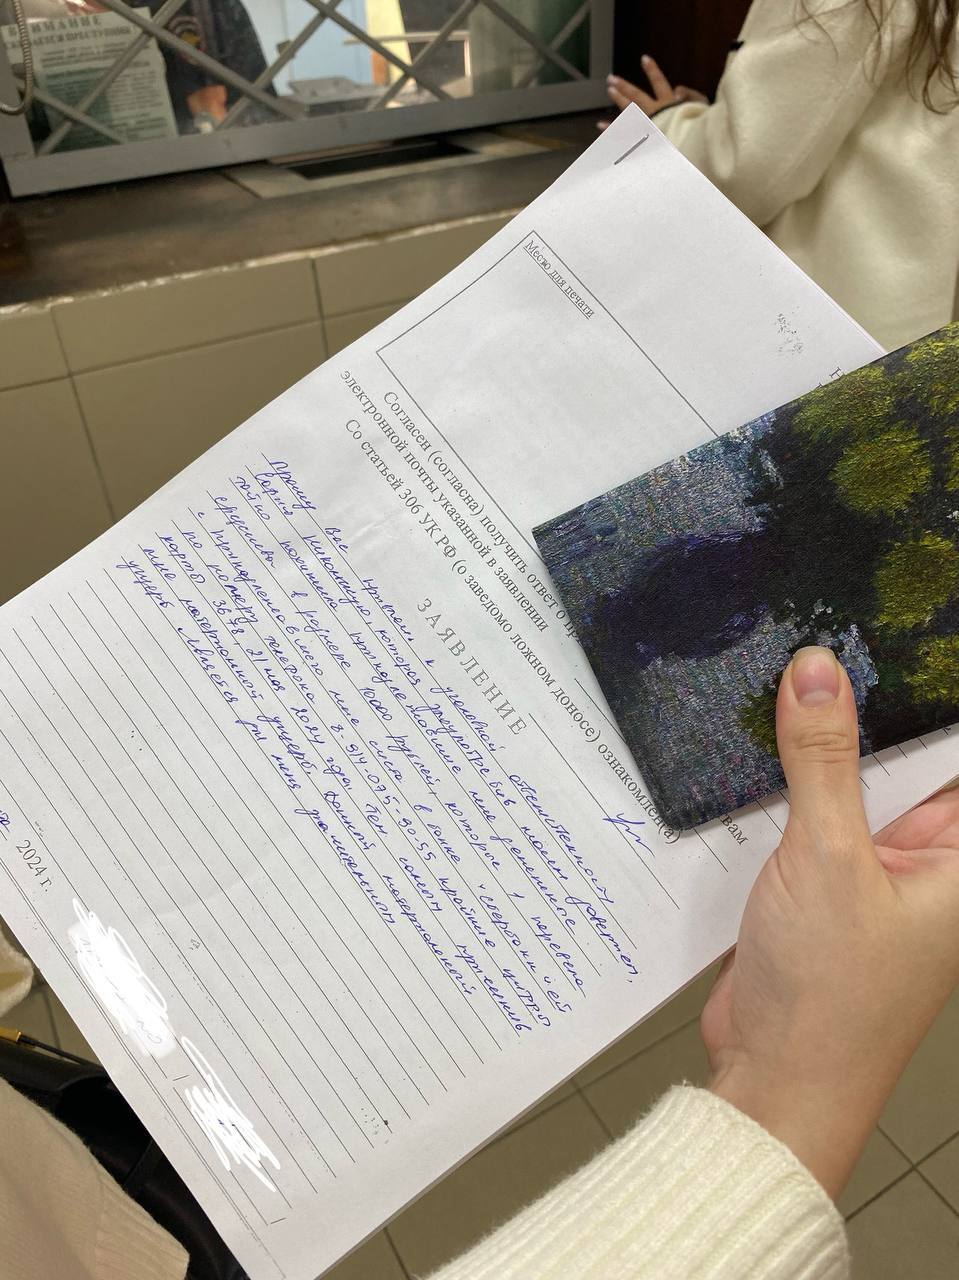 ВНИМАНИЕ
Место для печати
Согласен (согласна) получить ответ о
электронной почты указанной в заявлении
Со статьей 306 УК РФ (о заведомо ложном доносе) ознакомлен(а)
вам
ЗАЯВЛЕНИЕ
Прошу Вас привлечь к уголовной ответственности
которая злоупотребив моим доверием,
тайно похитила принадлежавшие мне денежные
средства в размере 10000 рублей, которые я перевела
с принадлежавшего мне счета в банке « Сбербанк » ей
по номеру телефона 8-914-075-30-55 крайние цифры
карты 3678, 21 мая 2024 года. Тем самым причинив
мне материальный ущерб. Данный материальный
ущерб является для меня значительным
2024 г.